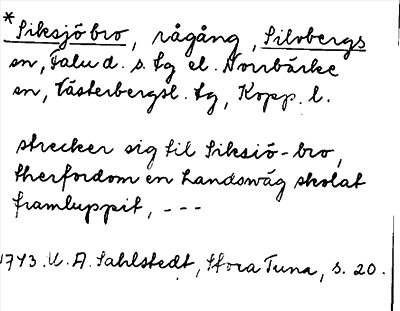 *Siksjö bro, rågång, Silvbergs
sn, Falu d. s. tg el. Norrbärke
sn, Västerbergsl. tg, Kopp. l.
strecker sig til Siksiö-bro,
therfordom en Landswäg skolat
framluppit, ---
1743. U. A. Sahlstedt, Stora Tuna, s. 20.